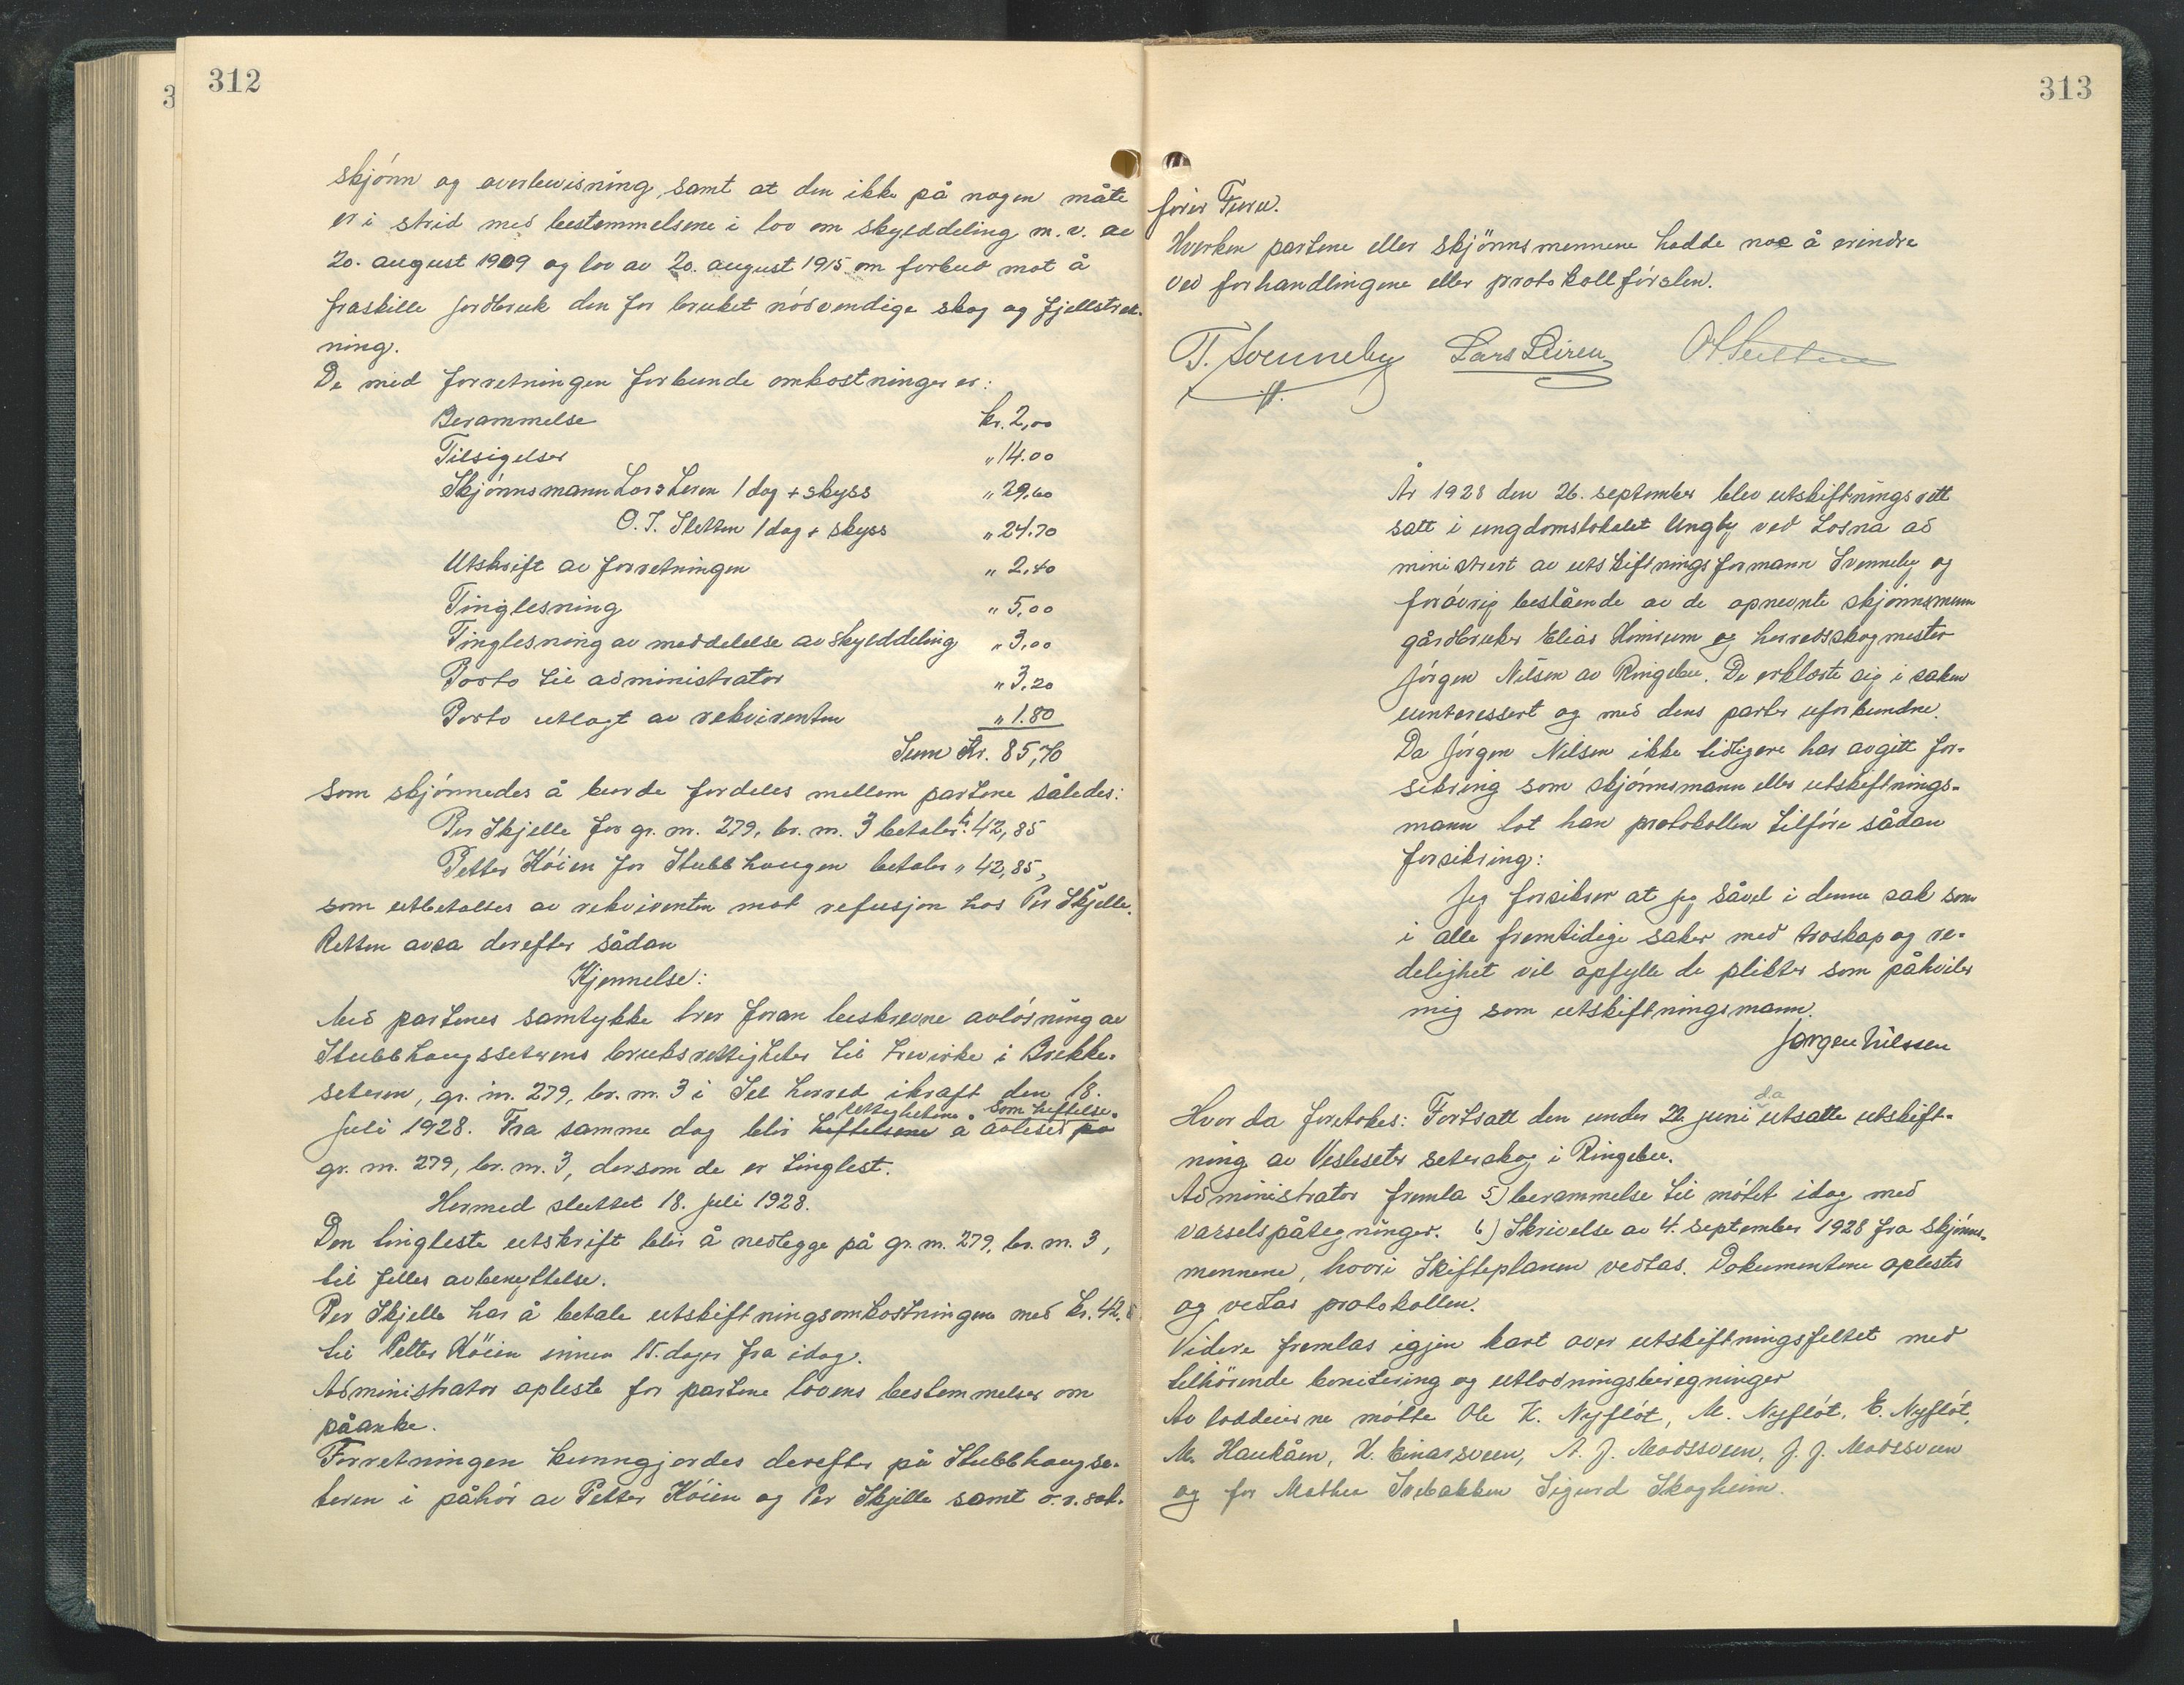 312
skjönn og overbevisning samt at den ikke på nogen måte
er i strid med bestemmelsene i lov om skylddeling m. v. av
20. august 1909 og lov av 20. august 1915 om forbud mot å
fraskille jordbruk den for bruket nödvendige skog og fjellstrek-
ning.
De med forretningen forbunde omkostninger er:
Berammelse kr. 2,00
Tilsigelser " 14.00
Skjönnsmann Lars Leren 1 dag + skyss " 29,60
O. T. Sletten 1 dag + skyss " 24.70
Utskrift av forretningen " 2,40
Tinglesning " 5,00
Tinglesning av meddelelse av skylddeling " 3,00
Porto til administrator " 3,20
Porto utlagt av rekvirenten " 1.80
Sum Kr. 85,70
som skjönnedes å burde fordeles mellem partene således:
Per Skjelle for gr. nr. 279, br. nr. 3 betaler kr. 42,85
Petter Köien for Stubbhaugen betaler " 42,85,
som utbetales av rekvirenten mot refusjon hos Per Skjelle.
Retten avsa derefter sådan
Kjennelse:
Med partenes samtykke trer foran beskrevne avlösning av
Stubbhaugseterens bruksrettigheter til trevirke i Brekke-
seteren, gr. nr. 279, br. nr. 3 i Sel herred ikraft den 18.
rettighetene som heftelse
juli 1928. Fra samme dag blir heftelsene å avleses på
gr. nr. 279, br. nr. 3, dersom de er tinglest.
Hermed sluttet 18. juli 1928.
Den tingleste utskrift blir å nedlegge på gr. nr. 279, br. nr. 3,
til felles avbenyttelse.
Per Skjelle har å betale utskiftningsomkostningene med kr. 42,8
til Petter Köien innen 15. dager fra idag.
Administrator opleste for partene lovens bestemmelser om
påanke.
Forretningen kunngjordes derefter på Stubbhaugse-
teren i påhör av Petter Köien og Per Skjelle samt o.r.sak-
313
förer Furu.
Hverken partene eller skjönnsmennene hadde noe å erindre
ved forhandlingene eller protokollförslen.
T. Svenneby Lars Leiren O T Sletten
År 1928 den 26. september blev utskiftningsrett
satt i ungdomslokalet Ungby ved Losna ad
ministrert av utskiftningsformann Svenneby og
forövrig bestående av de opnevnte skjönnsmenn
gårdbruker Elias Hemrum og herredsskogmester
Jörgen Nilsen av Ringebu. De erklærte sig i saken
uinteressert og med dens parter uforbundne.
Da Jörgen Nilsen ikke tidligere har avgitt for-
sikring som skjönnsmann eller utskiftnings-
mann lot han protokollen tilföre sådan
forsikring:
Jeg forsikrer at jeg såvel i denne sak som
i alle fremtidige saker med troskap og re-
delighet vil opfylle de plikter som påhviler
mig som utskiftningsmann.
Jørgen Nilssen
d.a
Hvor da foretokes: Fortsatt den under 22. juni utsatte utskift-
ning av Vesleseter seterskog i Ringebu.
Administrator fremla 5) berammelse til mötet idag med
varselspåtegninger. 6) Skrivelse av 4. september 1928 fra skjönns-
mennene, hvori Skifteplanen vedtas. Dokumentene oplestes
og vedlas protokollen.
Videre fremlas igjen kart over utskiftningsfeltet med
tilhörende bonitering og utlodningsberegninger
Av loddeierne mötte Ole K. Nyflöt, M. Nyflöt, E. Nyflöt,
M. Haukåen, H. Einarsveen, A. J. Madssveen, J. J. Madssveen
og for Mathea Svebakken Sigurd Skogheim.